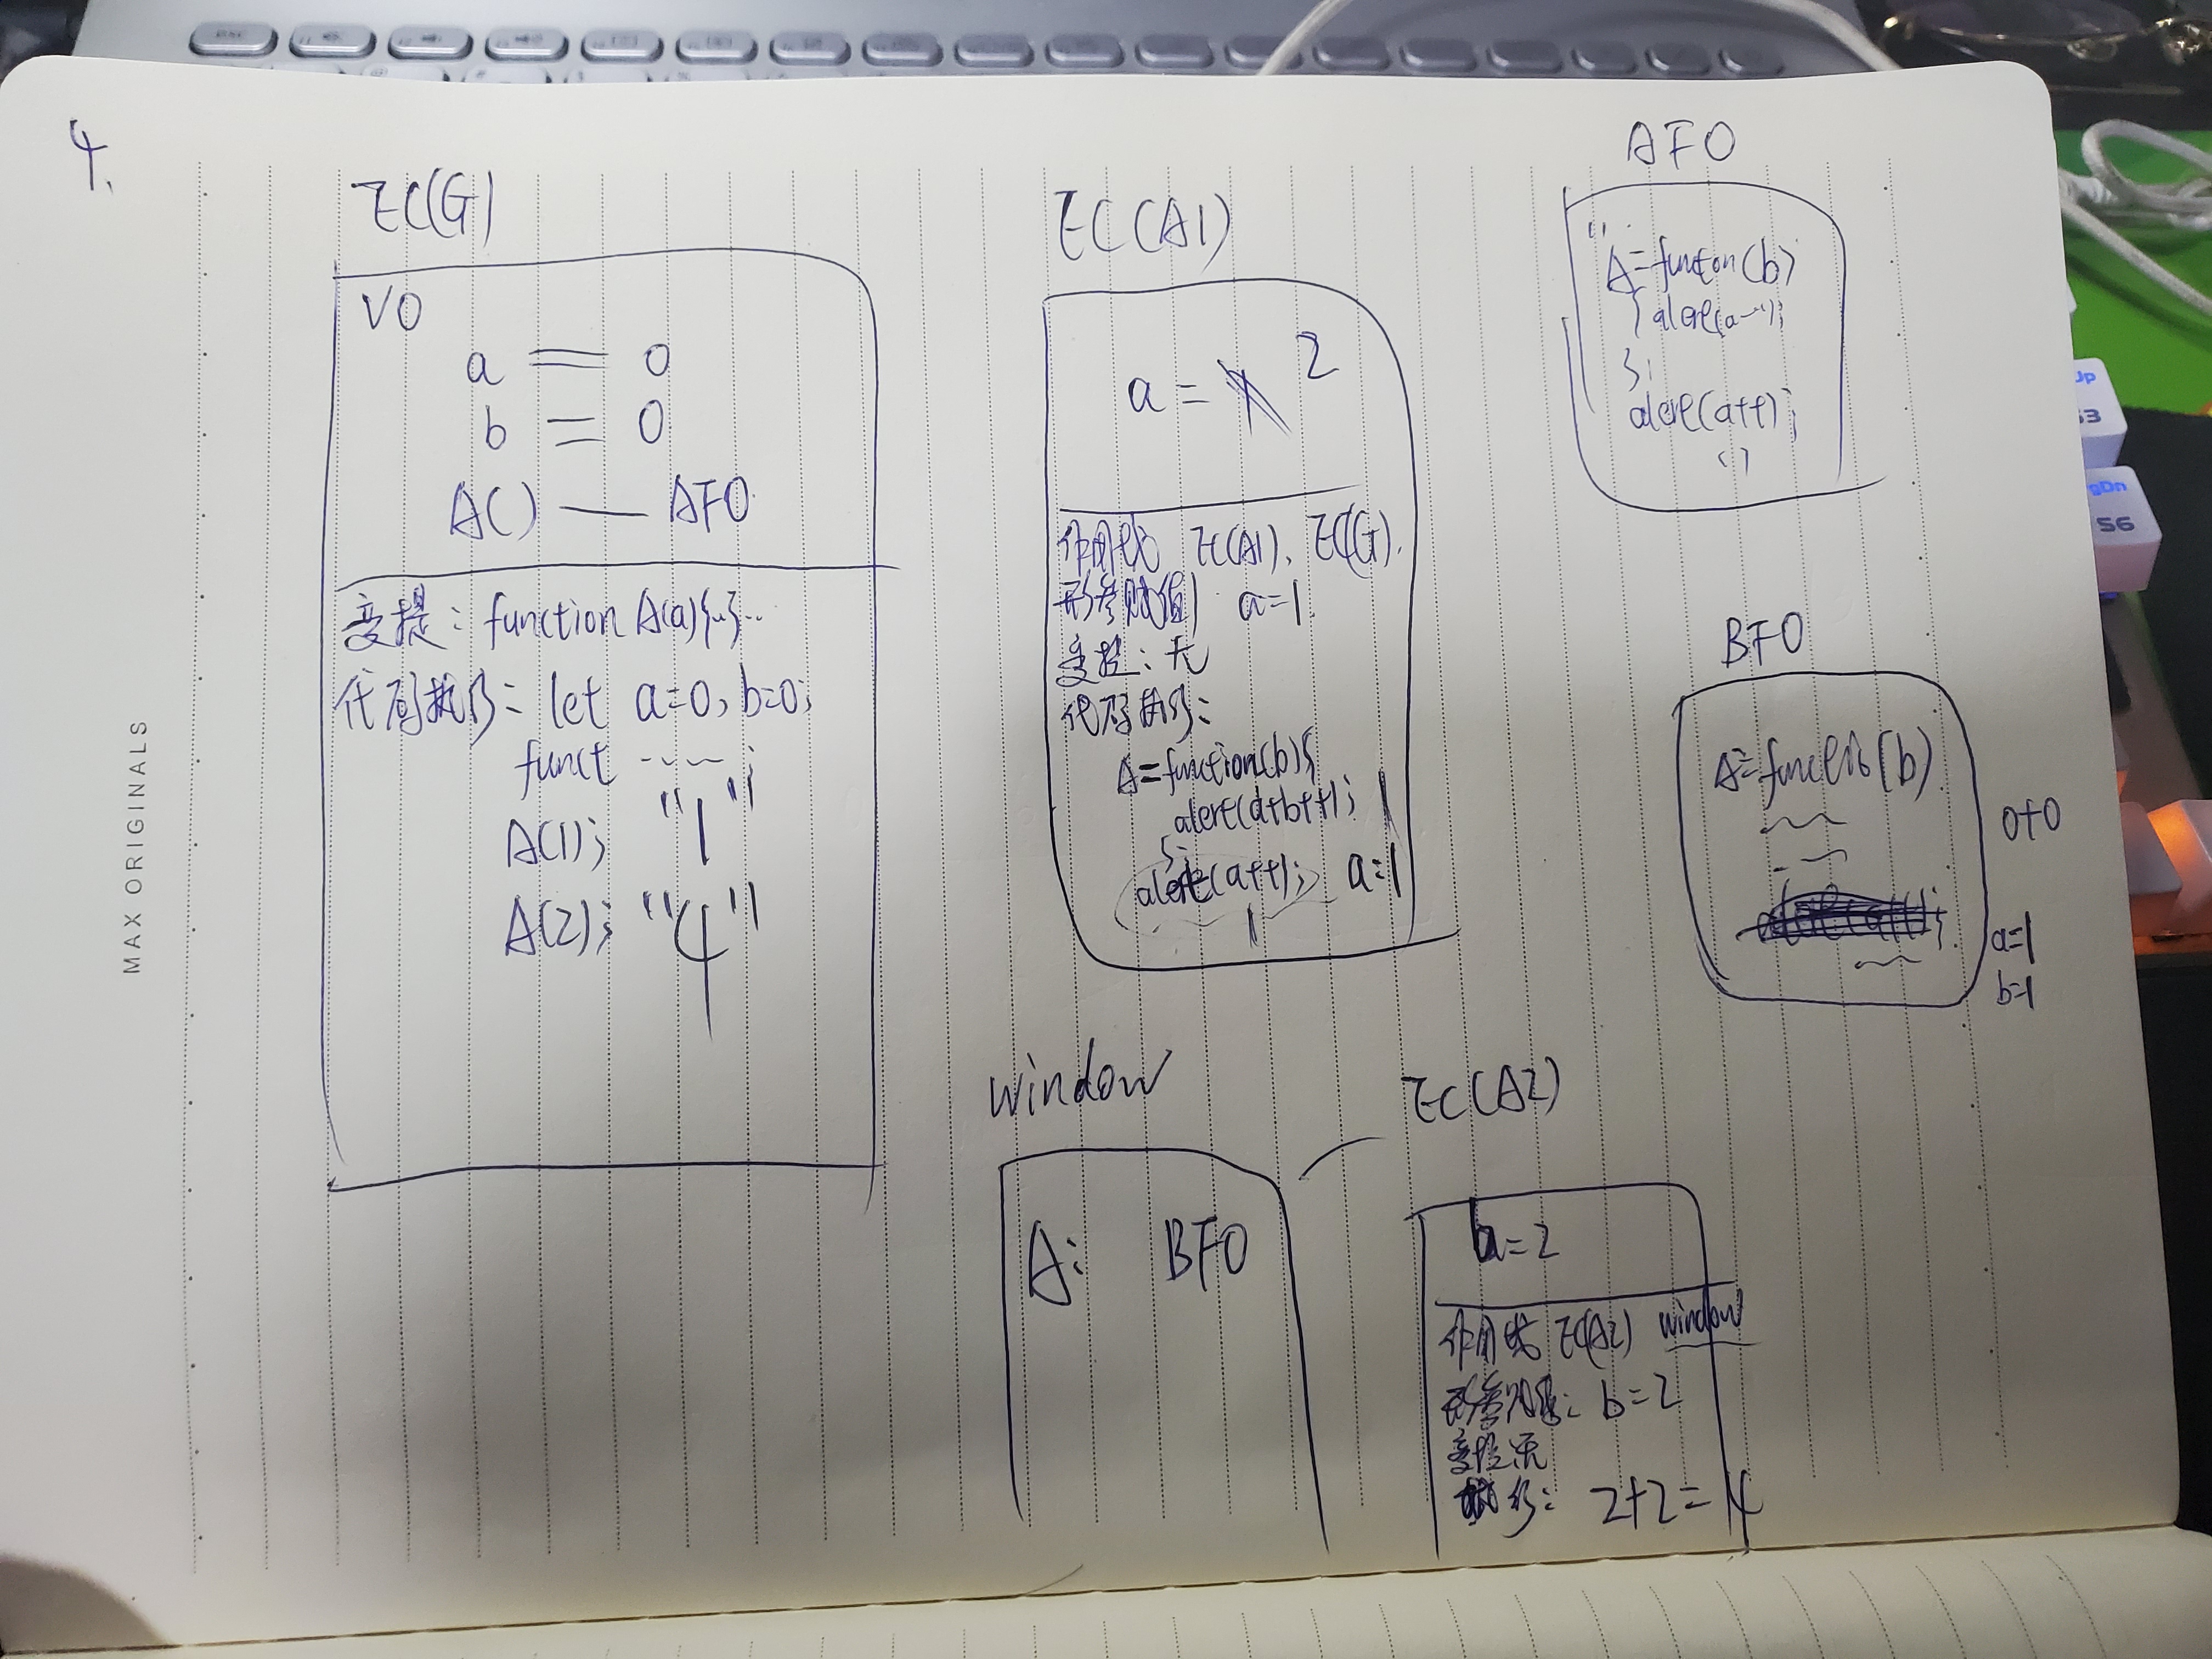 4.
EC(G)
VO
a = 0
b = 0
A() — AFO
变提: function A(a){..}...
代码执行: let a=0, b=0;
funct ----;
A(1); "1"
A(2); "4"
EC(A1)
a = 1 2
作用域 EC(A1), EC(G).
形参赋值 a=1.
变提: 无
代码执行:
A=function(b){
alert(a+b++);
};
alert(a++); a=1
1
AFO
"
A=function(b)
{alert(a~);
};
alert(a++);
"
BFO
A=function(b)
0+0
a=1
b=1
window
A: BFO
EC(A2)
b=2
作用域 EC(A2) window
形参赋值: b=2
变提无
行: 2+2=4
MAX ORIGINALS